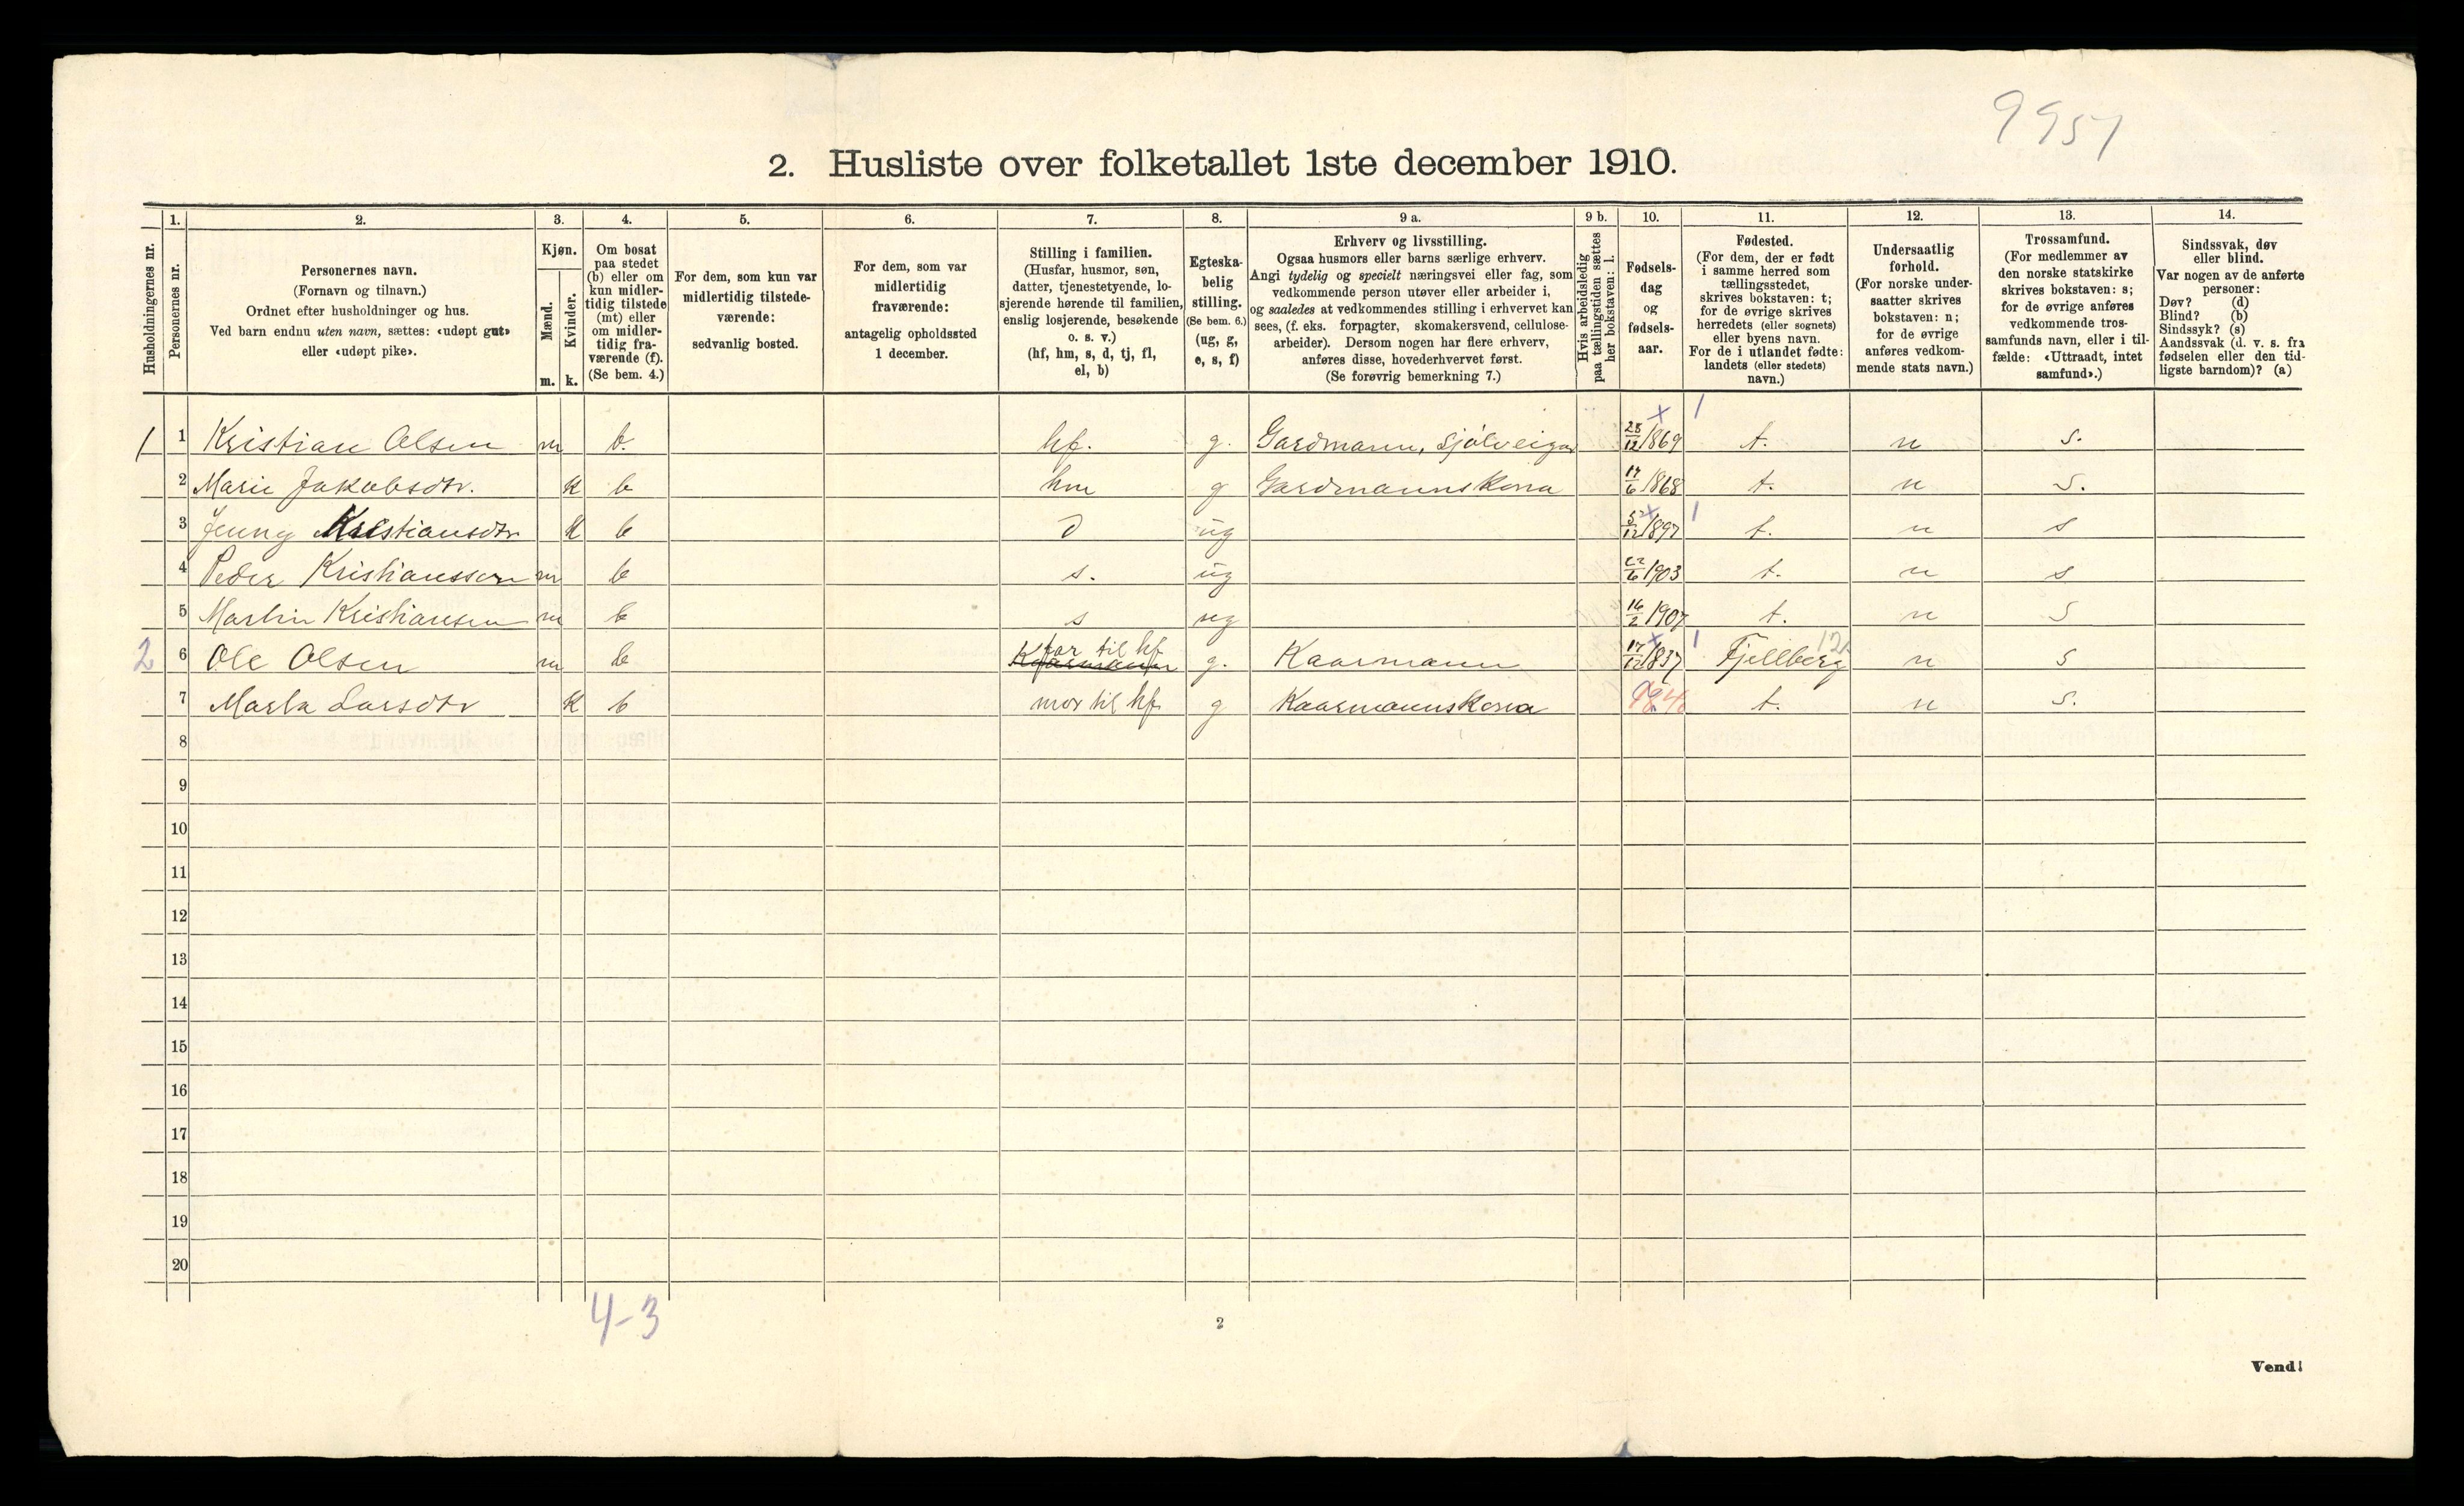 9951
2. Husliste over folketallet 1ste december 1910.
Husholdningernes nr.
1.
Personernes nr.
2.
Personernes navn.
(Fornavn og tilnavn.)
Ordnet efter husholdninger og hus.
Ved barn endnu uten navn, sættes: «udøpt gut»
eller «udøpt pike».
3.
Kjøn.
Mænd.
m.
Kvinder.
k.
4.
Om bosat
paa stedet
(b) eller om
kun midler-
tidig tilstede
(mt) eller
om midler-
tidig fra-
værende (f).
(Se bem. 4.)
5.
For dem, som kun var
midlertidig tilstede-
værende:
sedvanlig bosted.
6.
For dem, som var
midlertidig
fraværende:
antagelig opholdssted
1 december.
7.
Stilling i familien.
(Husfar, husmor, søn,
datter, tjenestetyende, lo-
sjerende hørende til familien,
enslig losjerende, besøkende
o. s. v.)
(hf, hm, s, d, tj, fl,
el, b)
8.
Egteska-
belig
stilling.
(Se bem. 6.)
(ug, g,
e, s, f)
9 a.
Erhverv og livsstilling.
Ogsaa husmors eller barns særlige erhverv.
Angi tydelig og specielt næringsvei eller fag, som
vedkommende person utøver eller arbeider i,
og saaledes at vedkommendes stilling i erhvervet kan
sees, (f. eks. forpagter, skomakersvend, cellulose-
arbeider). Dersom nogen har flere erhverv,
anføres disse, hovederhvervet først.
(Se forøvrig bemerkning 7.)
9 b.
Hvis arbeidsledig
paa tællingstiden sættes
her bokstaven: l.
10.
Fødsels-
dag
og
fødsels-
aar.
11.
Fødested.
(For dem, der er født
i samme herred som
tællingsstedet,
skrives bokstaven: t;
for de øvrige skrives
herredets (eller sognets)
eller byens navn.
For de i utlandet fødte:
landets (eller stedets)
navn.)
12.
Undersaatlig
forhold.
(For norske under-
saatter skrives
bokstaven: n;
for de øvrige
anføres vedkom-
mende stats navn.)
13.
Trossamfund.
(For medlemmer av
den norske statskirke
skrives bokstaven: s;
for de øvrige anføres
vedkommende tros-
samfunds navn, eller i til-
fælde: «Uttraadt, intet
samfund».)
14.
Sindssvak, døv
eller blind.
Var nogen av de anførte
personer:
Døv? (d)
Blind? (b)
Sindssyk? (s)
Aandssvak (d. v. s. fra
fødselen eller den tid-
ligste barndom)? (a)
1 1 Kristian Olsen m b. hf. g. Gardmann, Sjølveigar 28/12 1869 t. n s.
2 Marie Jakobsdtr. k b hm g Gardmannskona 17/6 1868 t. n s.
3 Jenny Kristiansdtr k b d ug 5/12 1897 t. n s
4 Peder Kristianssen m b s. ug 22/6 1903 t. n s
5 Martin Kristiansen m b s ug 16/2 1907 t. n s
2 6 Ole Olsen m b far til hf g. Kaarmann 17/12 1837 Fjellberg n s
7 Marta Larsdtr k b mor til hf g Kaarmannskona t. n s.
8
9
10
11
12
13
14
15
16
17
18
19
20
4-3
2
Vend!